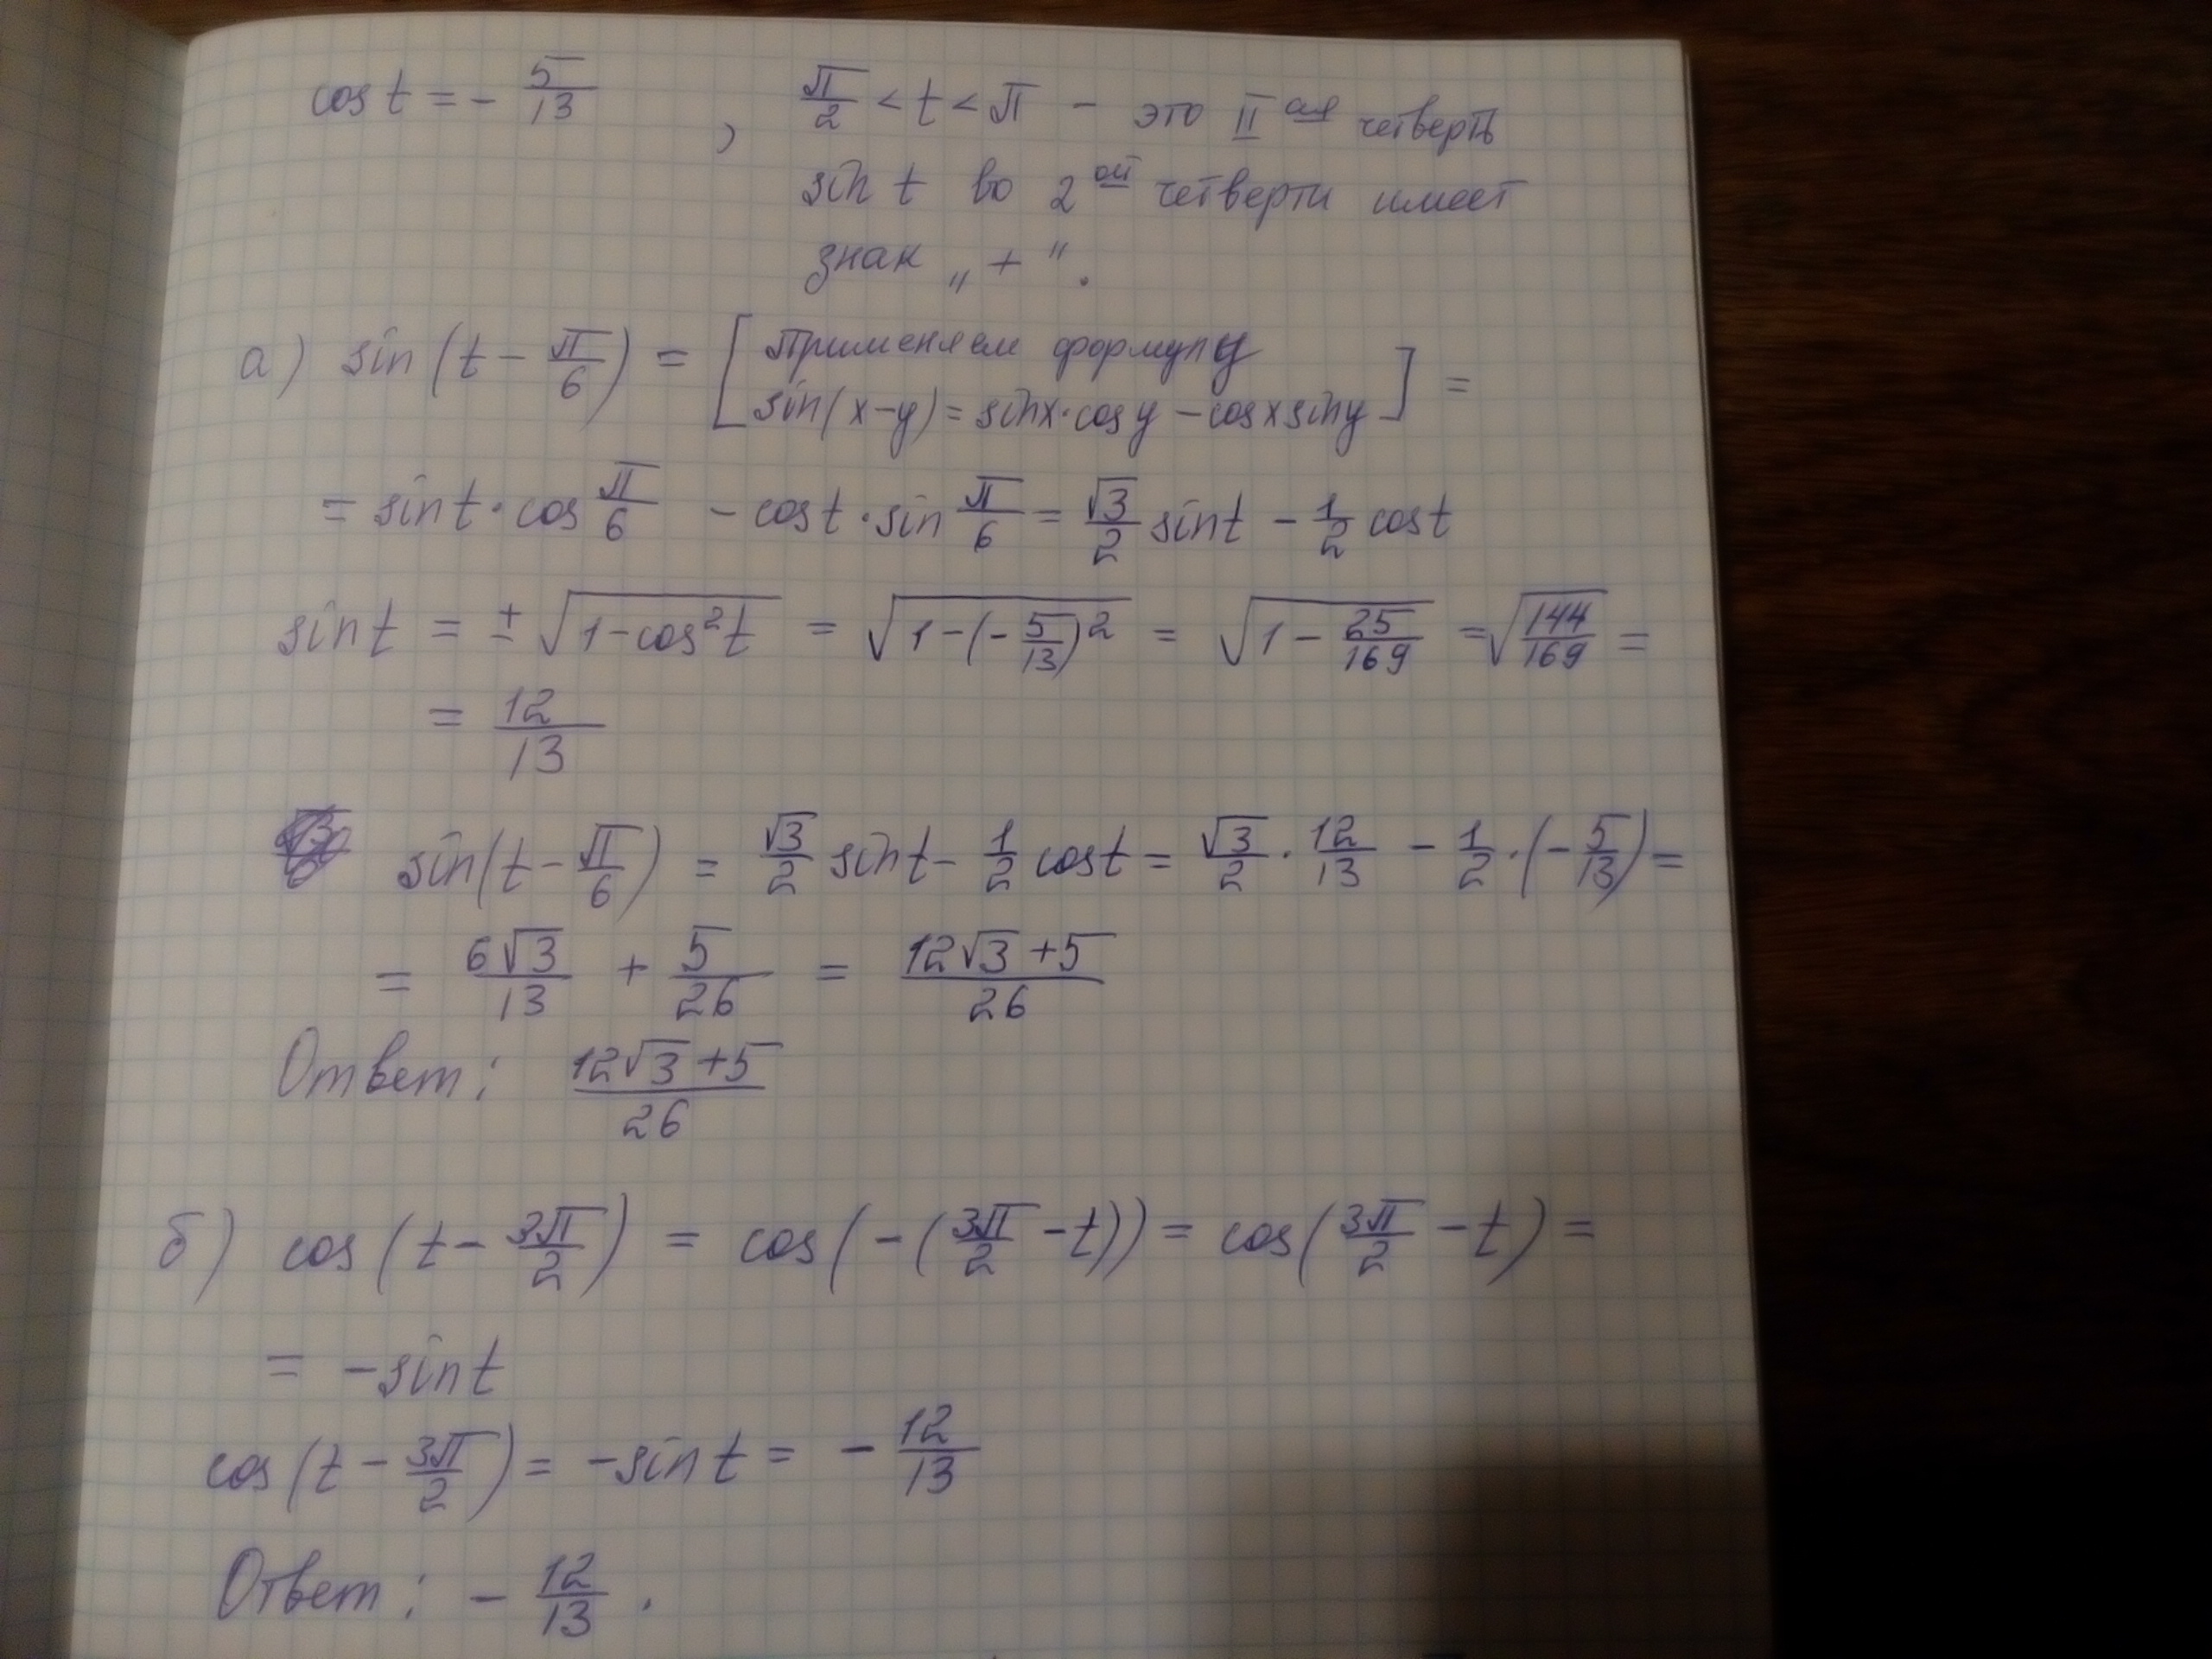 cos t = - 5/13 , π/2 < t < π - это II ая четверть
sin t во 2 ой четверти имеет
знак „ + ".
а) sin (t - π/6) = [ Применяем формулу
sin(x-y) = sinx·cosy - cosx siny ] =
= sin t · cos π/6 - cos t · sin π/6 = √3/2 sin t - 1/2 cos t
sin t = ± √(1 - cos² t) = √(1 - (- 5/13)²) = √(1 - 25/169) = √(144/169) =
= 12/13
sin(t - π/6) = √3/2 sin t - 1/2 cos t = √3/2 · 12/13 - 1/2 · (- 5/13) =
= 6√3/13 + 5/26 = (12√3 + 5)/26
Ответ: (12√3 + 5)/26
б) cos (t - 3π/2) = cos (- (3π/2 - t)) = cos (3π/2 - t) =
= - sin t
cos (t - 3π/2) = - sin t = - 12/13
Ответ: - 12/13 .